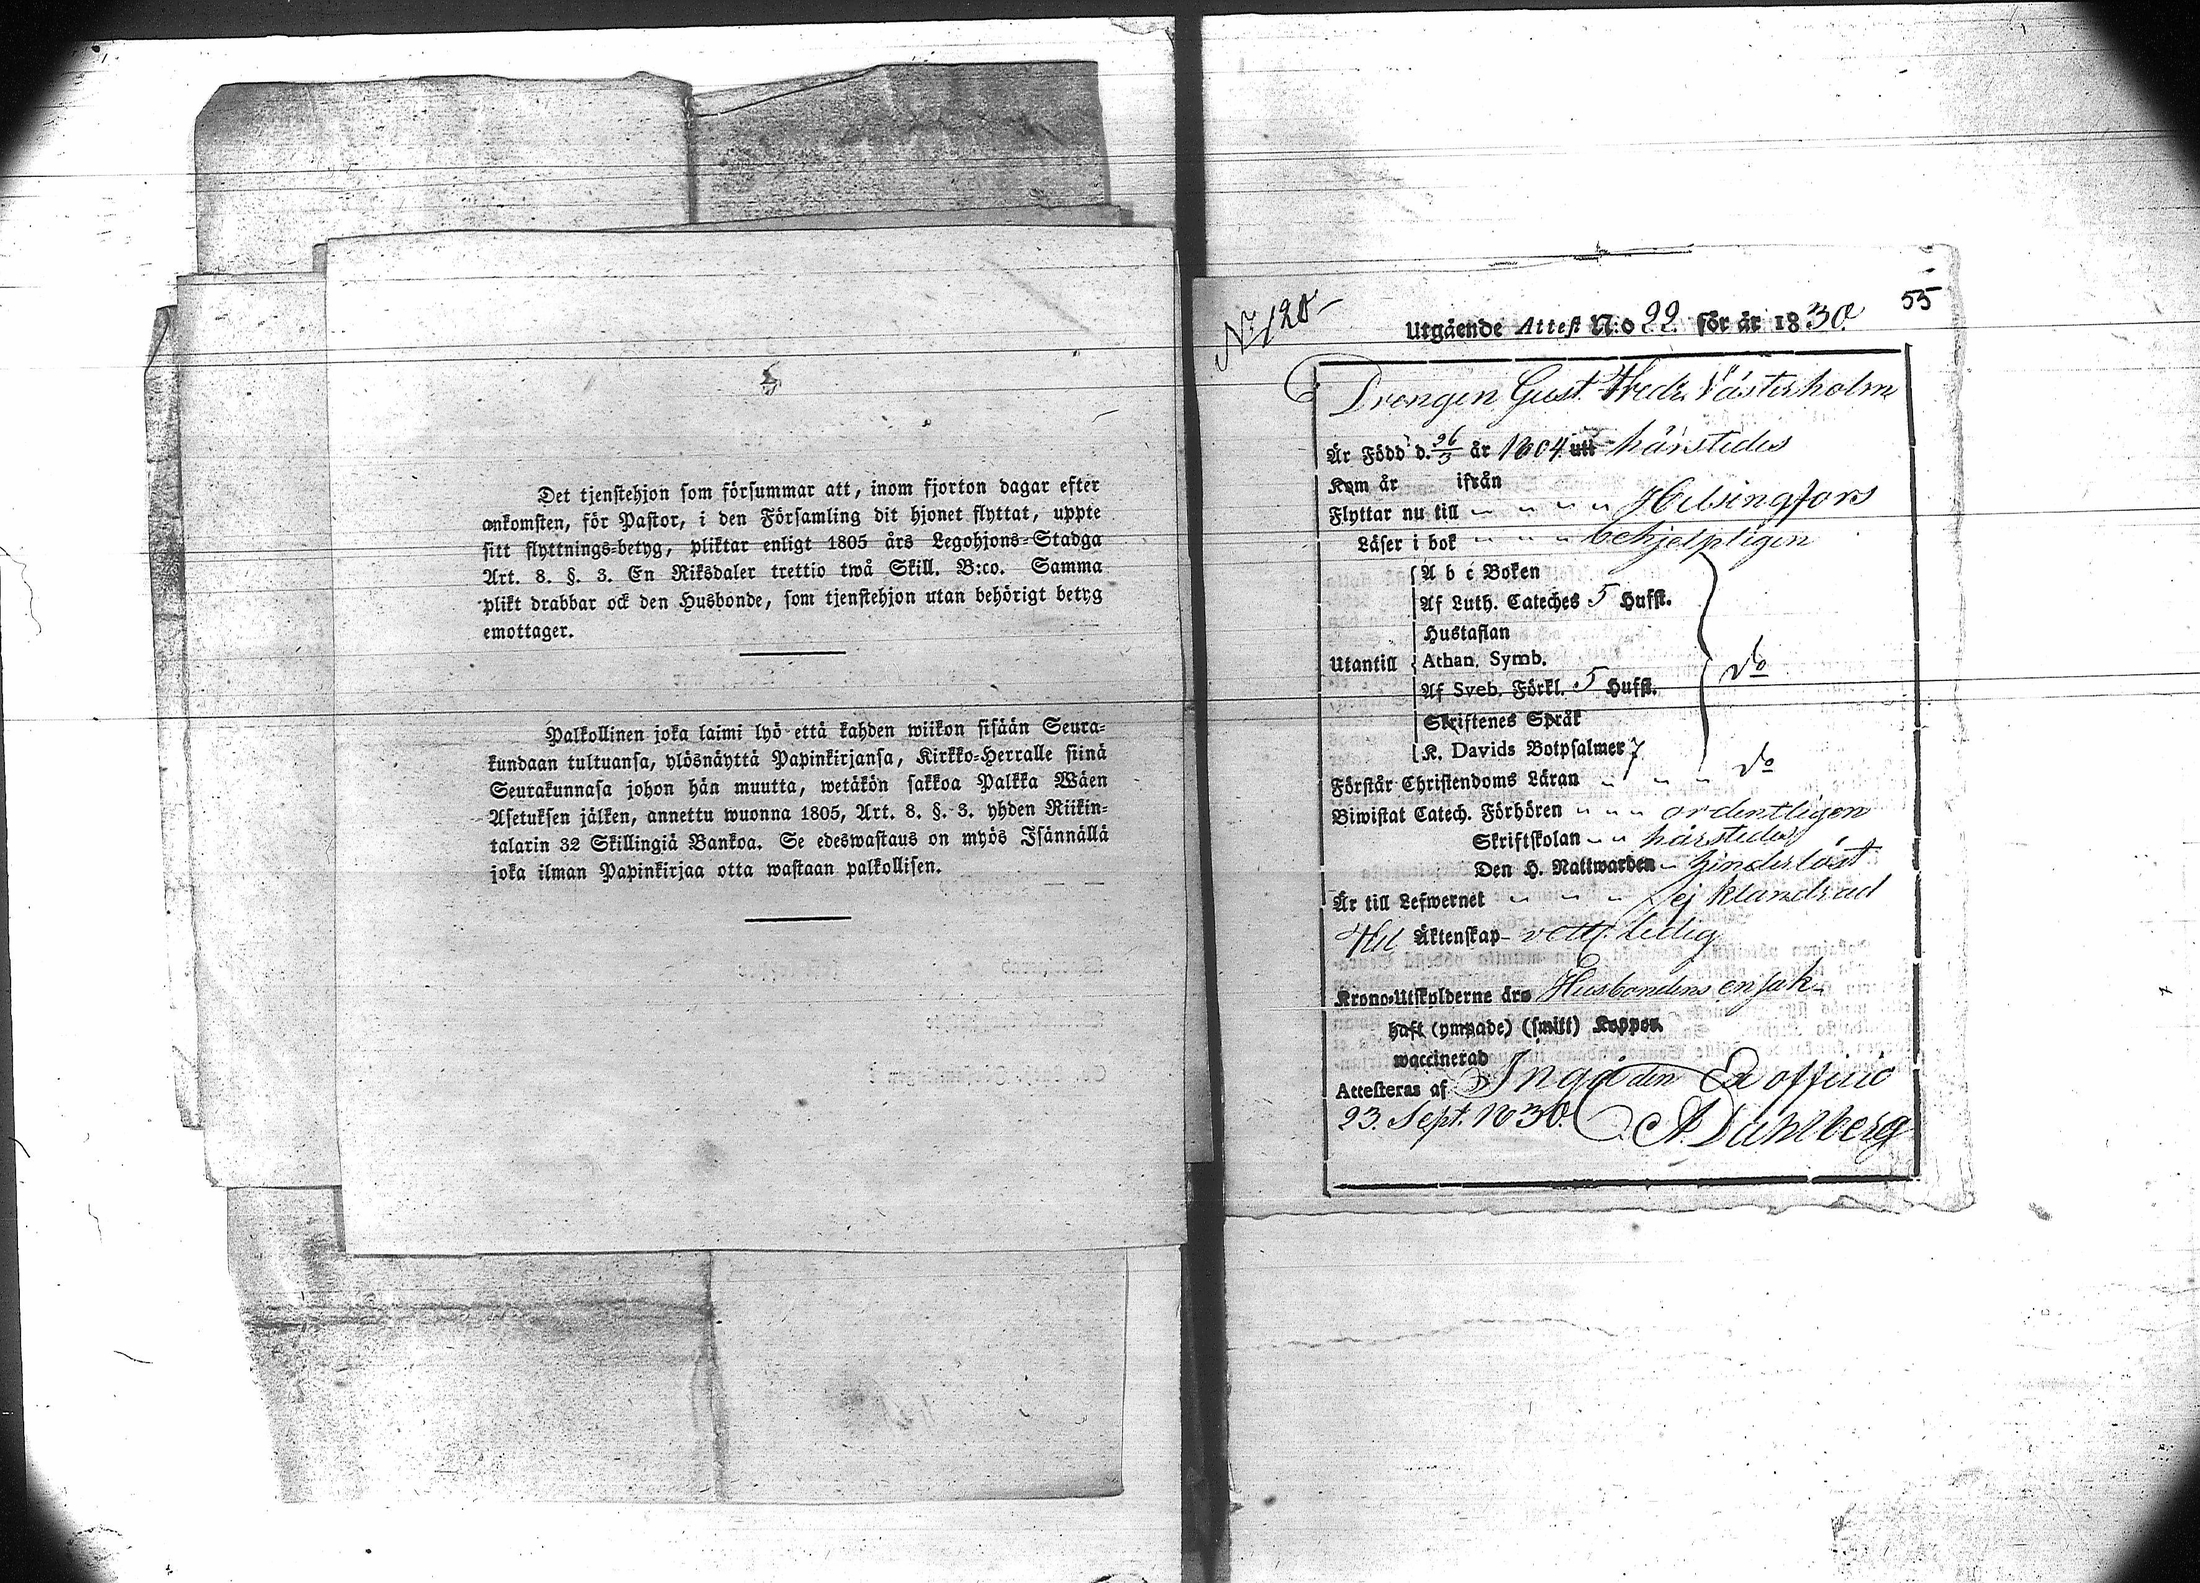 Det tjenstehjon som försummar att, inom fjorton dagar efter
ankomsten, för Pastor, i den Församling dit hjonet flyttat, uppte
sitt flyttnings-betyg, pliktar enligt 1805 års Legohjons-Stadga
Art. 8. §. 3. En Riksdaler trettio twå Skill. B:co. Samma
plikt drabbar ock den Husbonde, som tjenstehjon utan behörigt betyg
emottager.
Palkollinen joka laimi lyö että kahden wiikon sisään Seura-
kundaan tultuansa, ylösnäyttä Papinkirjansa, Kirkko-Herralle siinä
Seurakunnasa johon hän muutta, wetäkön sakkoa Palkka Wäen
Asetuksen jälken, annettu wuonna 1805, Art. 8. §. 3. yhden Riikin-
talarin 32 Skillingiä Bankoa. Se edeswastaus on myös Isännällä
joka ilman Papinkirjaa otta wastaan palkollisen.
55
No 120
Utgående Attest N:o 22 för år 1830
Drengen Gust. Fredr. Västerholm
Är Född d. 26/3 år 1804 utt härstedes
Kom år ifrån
Flyttar nu till " " " " Helsingfors
Läser i bok " " " behjelpligen
A b c Boken
Af Luth. Cateches 5 Hufst.
Hustaflan
Utantill Athan. Symb. do
Af Sveb. Förkl. 5 Hufst.
Skriftenes Språk
K. Davids Botpsalmer 7
Förstår Christendoms Läran " " " do
Biwistat Catech. Förhören " " " ordentligen
Skriftskolan " " härstedes
Den H. Nattwarden " hinderlöst
Är till Lefwernet " " " ej klandrad
Till Äktenskap - ledig
Krono-Utskylderne äro Husbondens ensak
haft (ympade) (smitt) Koppor
waccinerad
Attesteras af Ingå den Ex officio
23. Sept. 1830. A Dahlberg